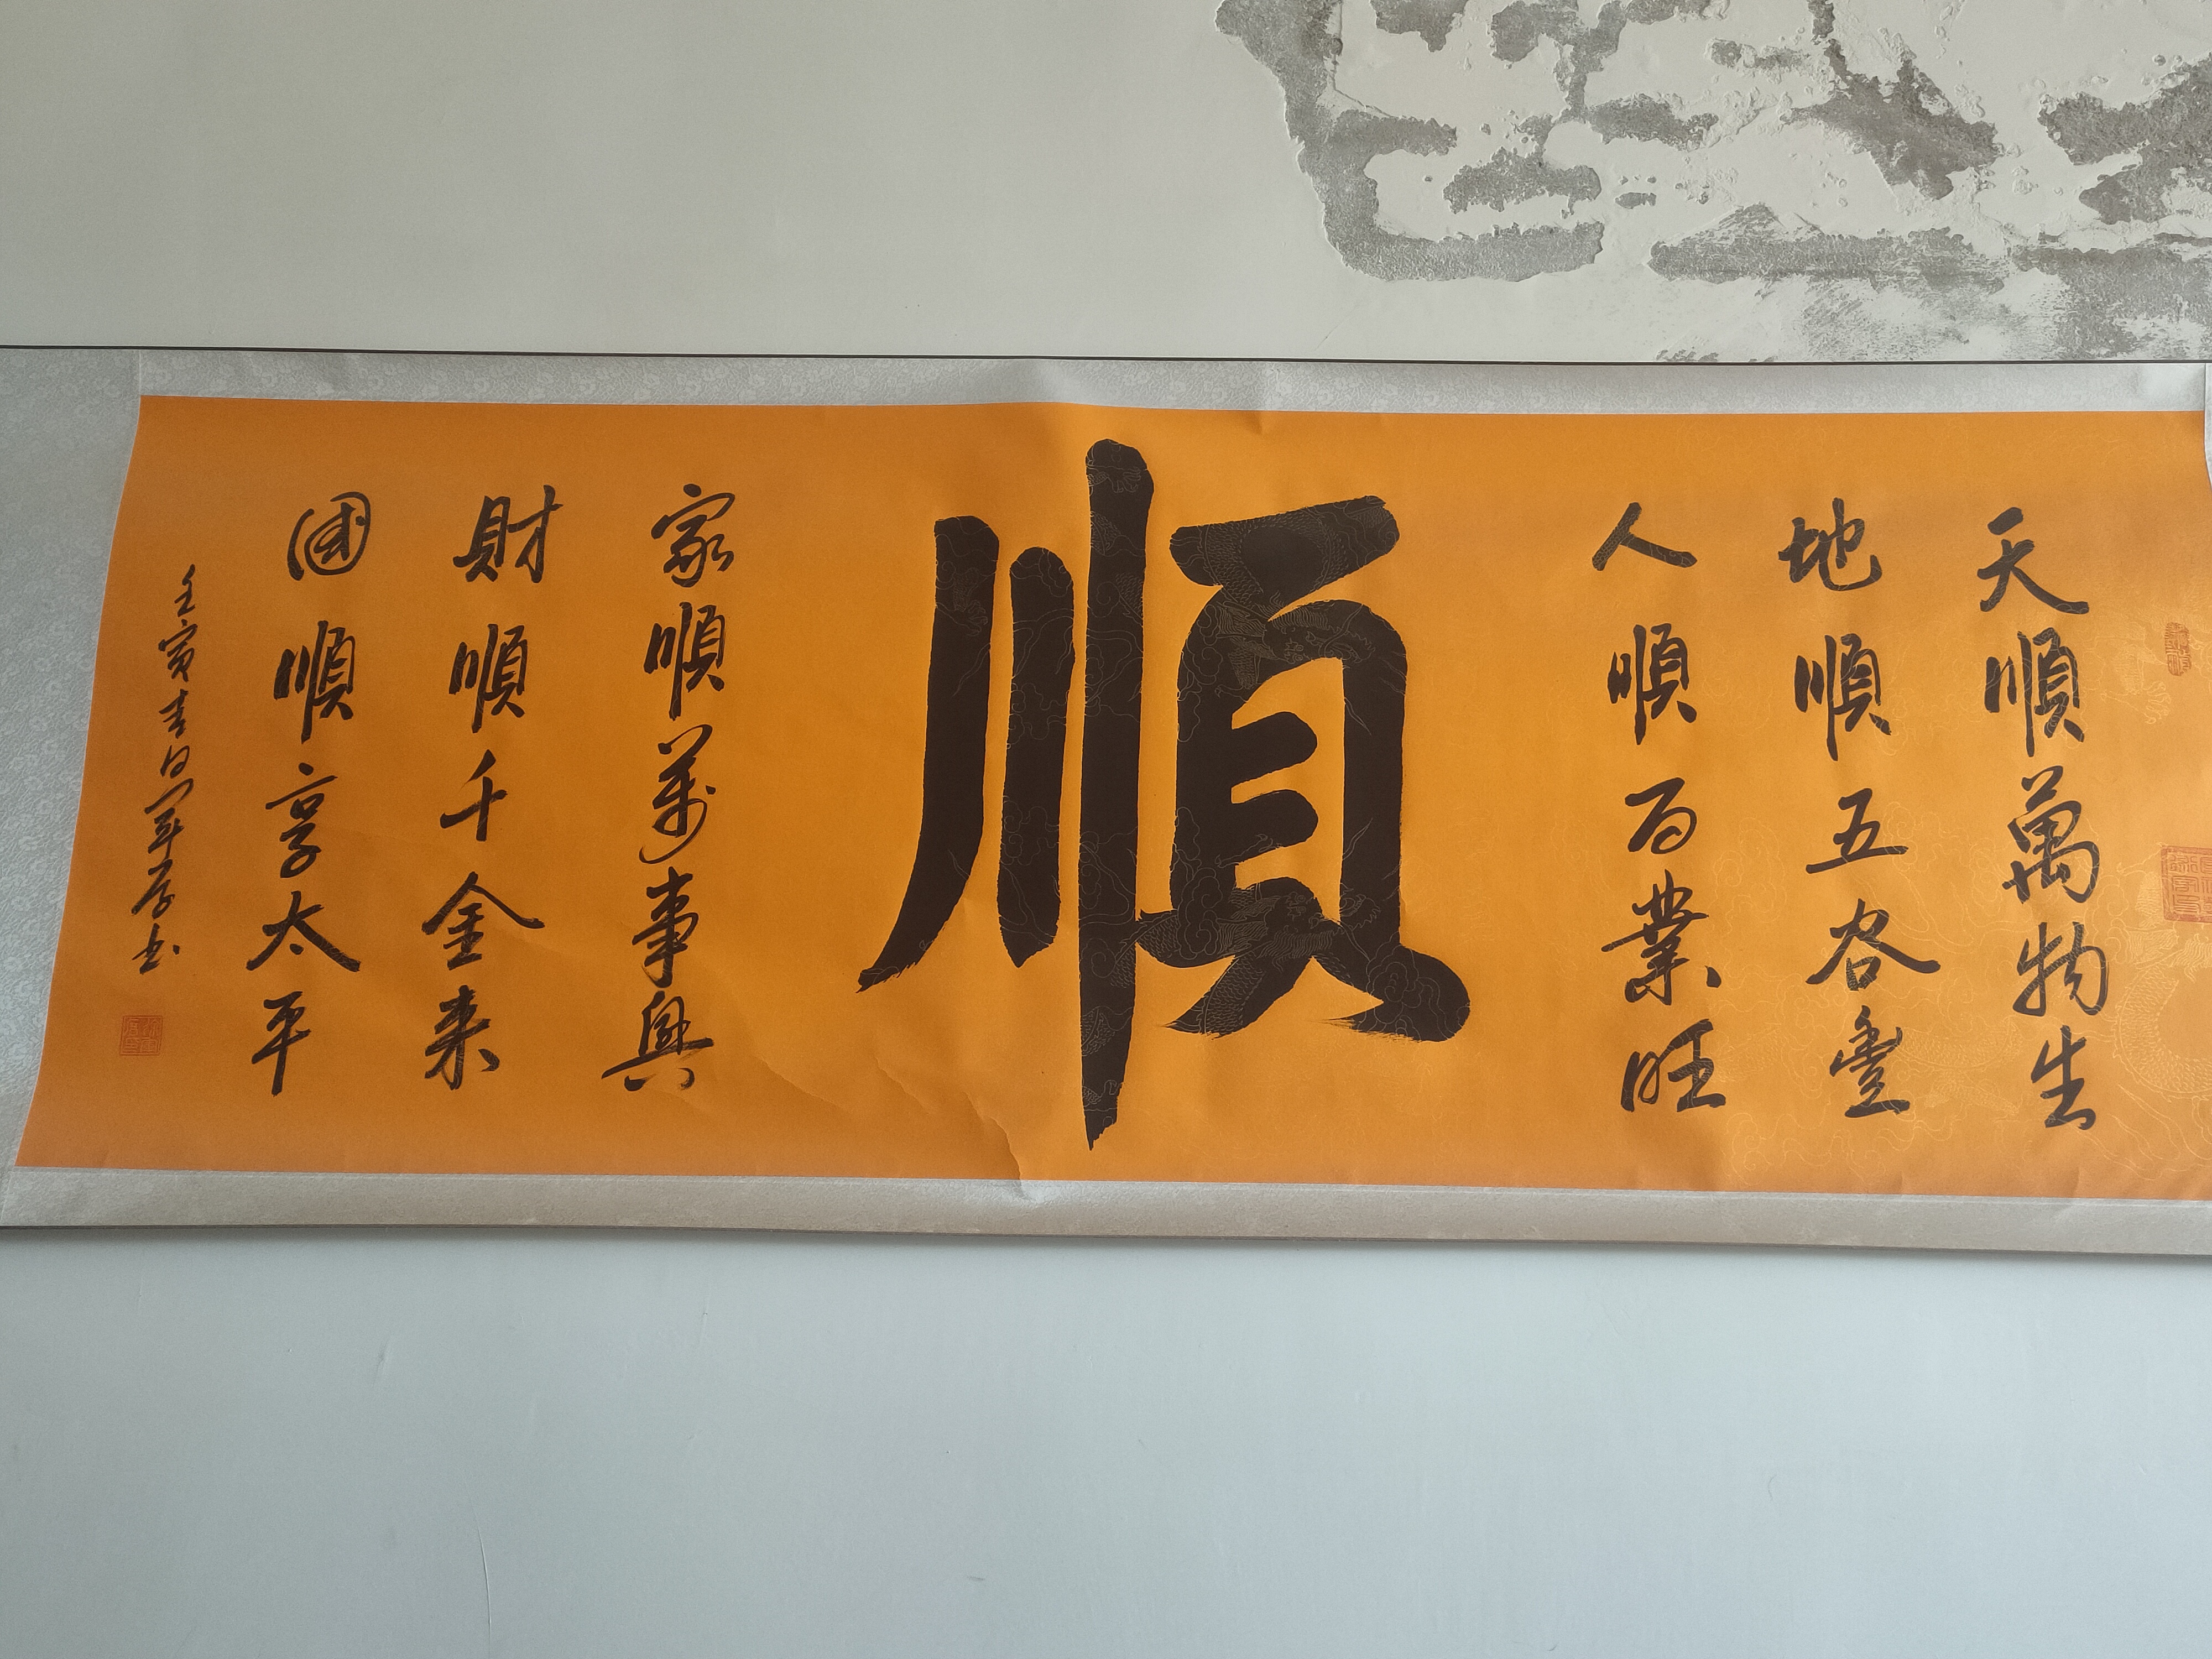 天順萬物生
地順五谷豐
人順百業旺
順
家順萬事興
財順千金来
國順享太平
壬寅吉日